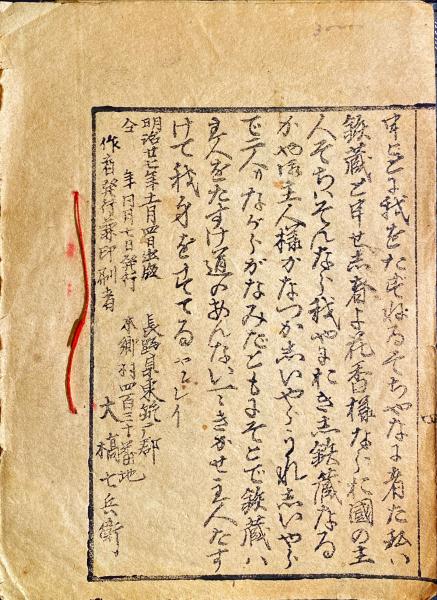 我をたづぬるそちやなに者だ私ハ
鉄蔵と申せし者よ花香様なら お國の主
人そちハそんなら我や 鉄蔵なる
かや 主人様かなつかしいやらうれしいやら
で二人 ながら なみだ 鉄蔵ハ
主人をたすけ道のあんない きかせ主人たす
けて我身をすてる ヤンレイ
明治廿七年十一月四日出版 長野県東筑广郡
仝 年同月七日発行 本郷村四百三十番地
作者発行兼印刷者 大橋七兵衛